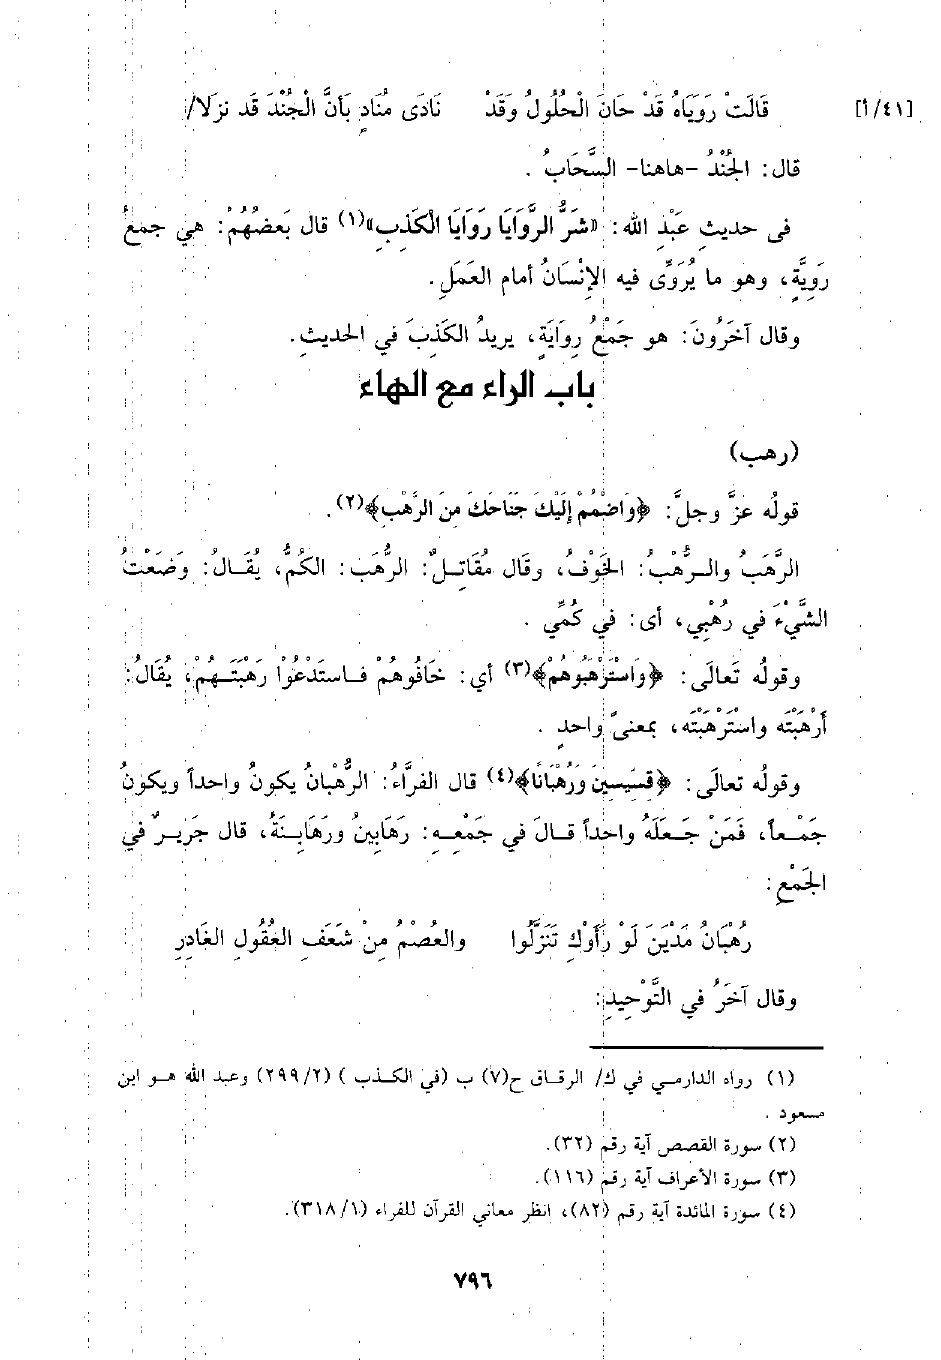 [٤١/أ] قَالَتْ رَوَيَاهُ قَدْ حَانَ الْحُلُولُ وَقَدْ نَادَى مُنَادٍ بَأنَّ الْجُنْدَ قَد نزلَا/
قال: الجُنْدُ -هاهنا- السَّحَابُ .
فى حديثِ عَبْدِ الله: «شَرُّ الرَّوَايَا رَوَايَا الْكَذِبِ»(١) قال بَعضُهُمْ: هي جمعُ
رَوِيَّةٍ، وهو ما يُرَوِّى فيه الإنْسَانُ أمام العَمَلِ.
وقال آخَرُونَ: هو جَمْعُ رِوَايَةٍ، يريدُ الكَذِبَ في الحديثِ.
باب الراء مع الهاء
(رهب)
قولُه عزَّ وجلَّ: ﴿وَاضْمُمْ إِلَيْكَ جَنَاحَكَ مِنَ الرَّهْبِ﴾(٢).
الرَّهَبُ والرُّهْبُ: الخَوْفُ، وقال مُقَاتِلٌ: الرُّهَبُ: الكُمُّ، يُقَالُ: وَضَعْتُ
الشَّيْءَ في رُهْبِي، أى: في كُمِّي .
وقولُه تَعالَى: ﴿وَاسْتَرْهَبُوهُمْ﴾(٣) أي: خَافُوهُمْ فاستَدْعُوْا رَهْبَتَهُمْ، يُقَالُ:
أَرْهَبْتَه واسْتَرْهَبْتَه، بمعنىً واحدٍ .
وقولُه تعالَى: ﴿قِسِّيسِينَ وَرُهْبَانًا﴾(٤) قال الفرَّاءُ: الرُّهْبانُ يكونُ واحداً ويكونُ
جَمْعاً، فَمَنْ جَعَلَهُ واحداً قالَ في جَمْعِهِ: رَهَابِينُ ورَهَابِنَةُ، قال جَرِيرٌ في
الجَمْعِ:
رُهْبَانُ مَدْيَنَ لَوْ رَأَوْكِ تَنَزَّلُوا والعُصْمُ مِنْ شَعَفِ العُقُولِ الغَادِرِ
وقال آخَرُ في التَّوْحِيدِ:
(١) رواه الدارمي في ك/ الرقاق ح(٧) ب (في الكذب ) (٢٩٩/٢) وعبد الله هو ابن
مسعود .
(٢) سورة القصص آية رقم (٣٢).
(٣) سورة الأعراف آية رقم (١١٦).
(٤) سورة المائدة آية رقم (٨٢)، انظر معاني القرآن للفراء (٣١٨/١).
٧٩٦